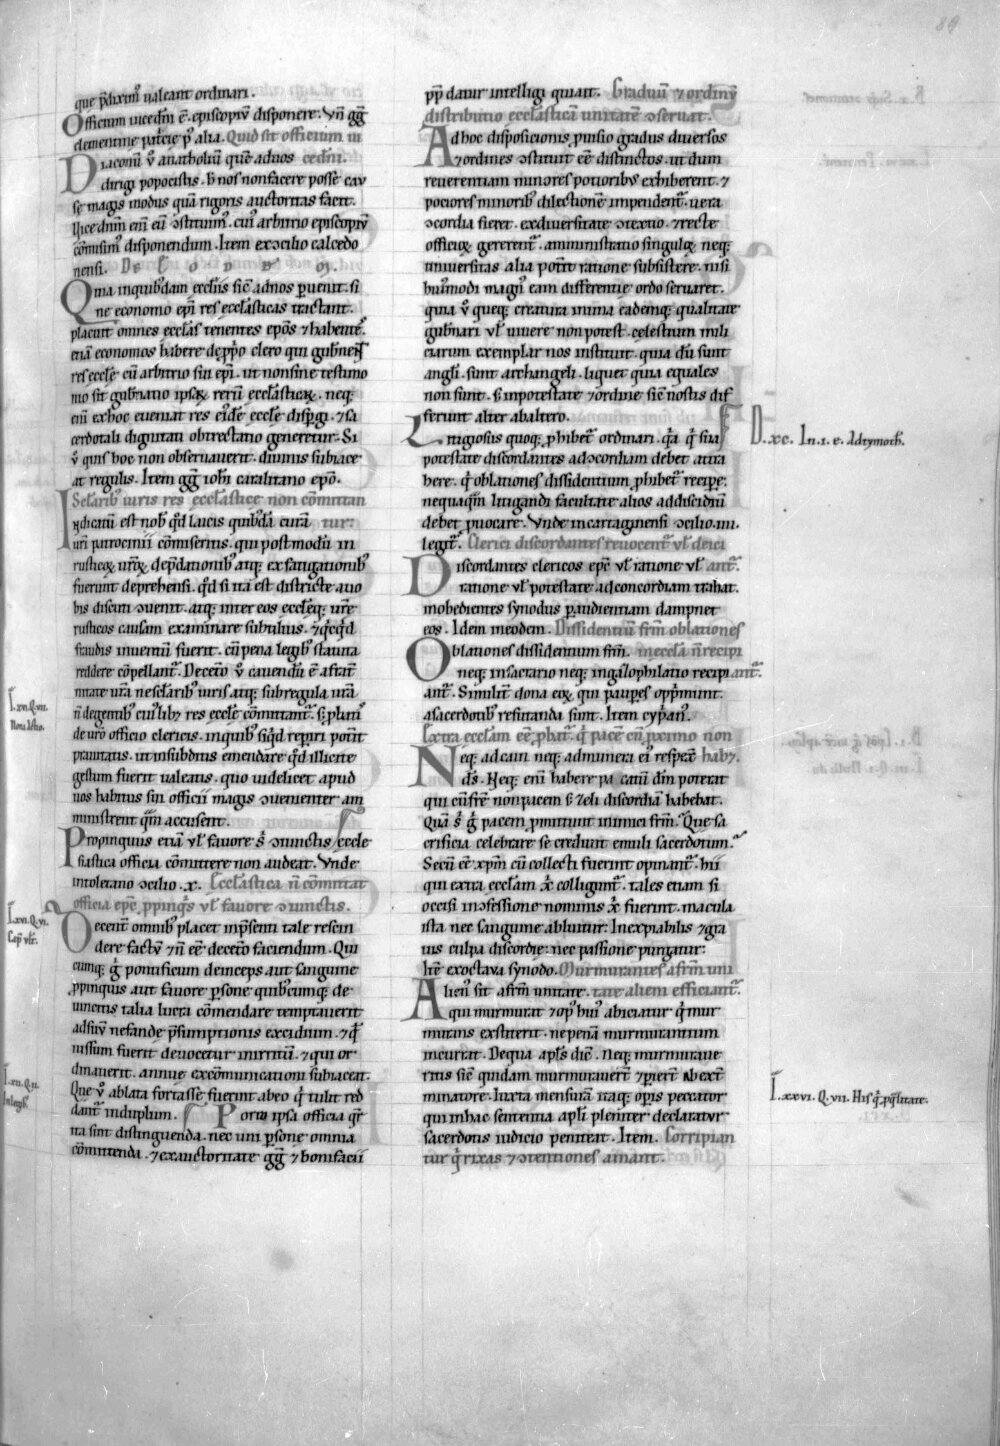 89
que p̄dixim᷒ ualeant ordinari.
Officium uicedn̄i ē. episcopiū disponere. Vn̄ gg̅
clementine pat͛cie p᷒ alia. Quid sit officium ui
Diaconū v̊ anatholiū quē adnos cedn̄i.
dirigi popocistis. h̄ nos non facere posse cau
sę magis modus quā rigoris auctoritas facit.
Vice dn̄m eni eū ɔstituim᷒. cui᷒ arbitrio episcopiū
cōmisim᷒ disponendum. Item ex ɔcilio calcedo
nensi.
Quia in quib᷒dam eccl̄iis sic̄ ad nos p̱uenit. si
ne economo epī res eccl̄asticas tractant.
placuit omnes eccl̄as tenentes ep̄os ⁊ habentes
etiā economos habere de pprio clero qui gub̄nent
res eccl̄e cū arbitrio sui epī. ut non sine testimo
nio sit gub̄natio ipsaꝝ rerū eccl̄asticaꝝ. neq;
eni ex hoc eueniat res ei᷒dē eccl̄e disp̱gi. ⁊ sa
cerdotali dignitati obtrectatio generetur. Si
v̊ quis hoc non obseruauerit. diuinis subiace
at regulis. Item gg̅ ioh̄i caralitano ep̄o.
Sęclarib᷒ iuris res eccl̄astice non cōmittan
Indicatū est nob᷒ qd̄ lucis quib᷒dā curā tur.
uri patrocinii cōmiseritis. qui post modū in
rusticoꝝ uroꝝ dep̄dationib᷒ atq; exfatigationib᷒
fuerunt deprehensi. qd̄ si ita est districte a uo
bis discuti ɔuenit. atq; inter eos eccl̄eq; ur̄e
rusticos causam examinare subtilius. ⁊ qc̄qd
fraudis inuentū fuerit. cū pena legib᷒ statuta
reddere cōpellant᷒. De cetō v̊ cauendū ē a frat̄
nitate ur̄a ne sęclarib᷒ uiris atq; sub regula ur̄a
n̄ degentib᷒ cui᷒libꝫ res eccl̄e cōmittant᷒. sꝫ p̱batis
de ur̄o officio clericis. in quib᷒ siqd̄ rep̱iri pot᷒it
prauitatis. ut in subditis emendare qd̄ illicite
gestum fuerit ualeatis. quo uidelicet apud
uos habitus sui officii magis ɔuenienter am
ministrent qm̄ accusent.
Propinquis etiā ul̄ fauore s̄ ɔiunctis eccle
siastica officia cōmittere non audeat. Vnde
in toletano ɔcilio. x. Eccl̄astica n̄ cōmittat
officia ep̄e ppinqis ul̄ fauore ɔiunctis.
Decent᷒ omnib᷒ placet in p̄senti tale rescin
dere factū ⁊ n̄ ee̅ de cetō faciendum. Qui
cumq; g̊ pontificum deinceps aut sanguine
ppinquis aut fauore p̱sone quibuscumq; de
uinctis talia lucra cōmendare temptauerit
ad suū nefande p̄sumptionis excidium. ⁊ qd̄
iussum fuerit deuocetur in irritū. ⁊ qui or
dinauerit. annue excōmunicationi subiaceat.
Que v̊ ablata fortasse fuerint. ab eo q̊ tulit red
dant᷒ in duplum. Porro ipsa officia qr̄
ita sint distinguenda. nec uni p̱sone omnia
cōmittenda. ⁊ ex auctoritate gg̅ ⁊ bonifacii
pp̄ datur intelligi quiait. Graduū ⁊ ordinū
distributio eccl̄asticā unitatē ɔseruat.
Ad hoc dispositionis p̱uisio gradus diuersos
⁊ ordines ɔstituit ee̅ distinctos. ut dum
reuerentiam minores potiorib᷒ exhiberent. ⁊
potiores minorib᷒ dilectionē impendent᷒. uera
ɔcordia fieret. ex diuersitate ɔtextio. ⁊ recte
officioꝝ gereret᷒. aministratio singuloꝝ. neq;
uniuersitas alia pot᷒it ratione subsistere. nisi
hui᷒modi magn᷒ eam differentie ordo seruaret.
quia v̊ queq; creatura in una eademq; qualitate
gub̄nari ul̄ uiuere non potest. celestium mili
ciarum exemplar nos instituit. quia dū sunt
angl̄i. sunt archangeli. liquet quia equales
non sunt. sꝫ in potestate ⁊ ordine sic̄ nostis dif
ferunt alter ab altero.
Litigiosus quoq; phibet᷒ ordinari. q̄a q̄ sua
potestate discordantes ad ɔcordiam debet attra
here. q̄ oblationes dissidentium phibet᷒ recipe᷒.
nequaqm̄ litigandi facultate alios ad discidiū
debet puocare. Vnde in cartaginensi ɔcilio. iiii.
legit᷒. Clerici discordantes reuocent᷒ ul̄ deici
Discordantes clericos ep̄c ul̄ ratione ul̄ ant᷒.
ratione ul̄ potestate ad concordiam trahat.
inobedientes synodus p̱ audientiam dampnet
eos. Idem in eodem. Dissidentiū frm̄ oblationes
Oblationes dissidentium frm̄. in eccl̄a n̄ recipi
neq; in sacrario neq; in gazophilatio recipiant᷒.
ant᷒. Similit᷒ dona eoꝝ qui paupes opp̱munt.
a sacerdotib᷒ refutanda sunt. Item cypan᷒.
Extra eccl̄am ee̅ pbat᷒. q̄ pacē cū pximo non
Neq; ad cain neq; ad munera ei᷒ respex̄ habꝫ.
ds̄. Neq; eni habere pacatū dm̄ poterat
qui cū fr̄e non pacem sꝫ zeli discordiā habebat.
Quā s̄ g̊ pacem p̱mittunt inimici frm̄. Que sa
crificia celebrare se credunt emuli sacerdotum.
Secū ee̅ xp̄m cū collecti fuerint opinant᷒. hii
qui extra eccl̄am x̄ colligunt᷒. tales etiam si
occisi in ɔfessione nominis x̄ fuerint. macula
ista nec sanguine abluitur. Inexpiabilis ⁊ gra
uis culpa discordie. nec passione purgatur.
Itē ex octaua synodo. Murmurantes a frm̄ uni
Alien᷒ sit a frm̄ unitate. tate alieni efficiant᷒.
qui murmurat ⁊ op᷒ hui᷒ abiciatur q̄ mur
murans exstiterit. ne penā murmurantium
incurrat. De qua apl̄s dic̄. Neq; murmuraue
ritis sic̄ quidam murmurauer̄t ⁊ p̱ier̄t ab ext᷒
minatore. Iuxta mensurā itaq; op̱is peccator
qui in hac sententia apl̄i plenit᷒ declaratur
sacerdotis iudicio peniteat. Item. Corripian
tur q̄ rixas ⁊ ɔtentiones amant.
I. xvi. Q. vi.
I. xii. Q. ii.
D. xc. In. i. e.
I. xxvi. Q. vii.